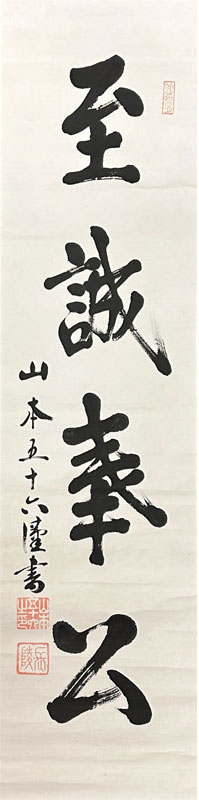 至誠奉公
山本五十六謹書
長陵